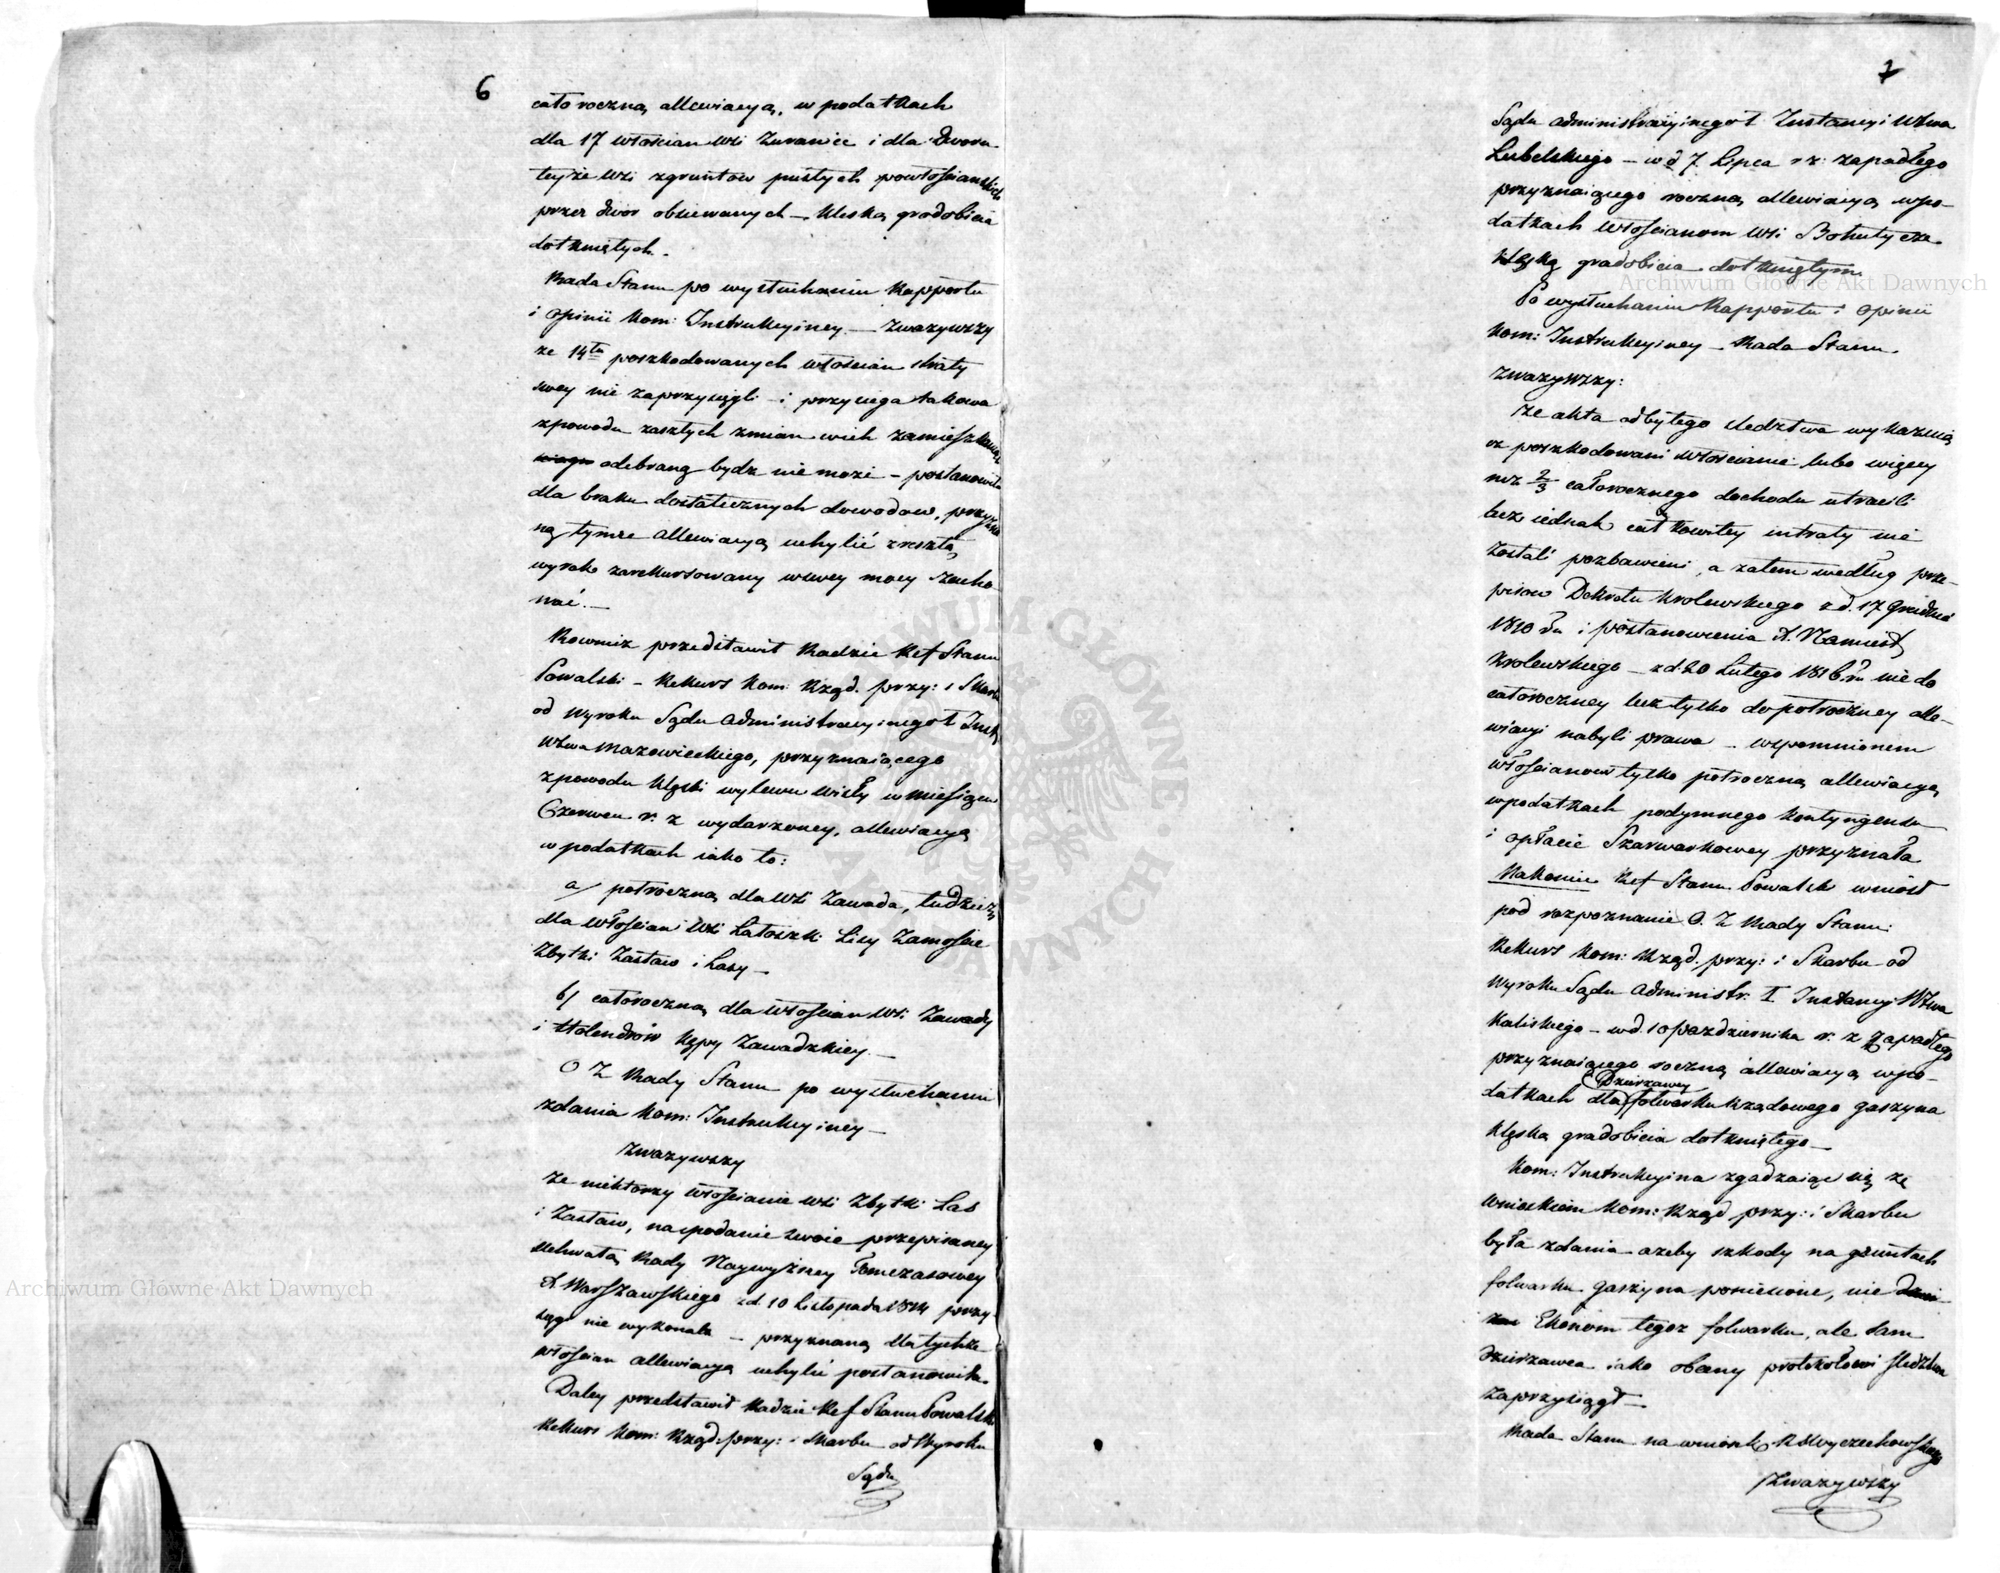 6
całoroczną allewiacyą, w podatkach
dla 17 włoscian wsi Zuranice i dla Dworu
teyże wsi zgruntow pustych powłościanskich
przez dwor obsiewanych – kleską gradobicia
dotkniętych. –
Rada Stanu po wysłuchaniu Rapportu
i opinii Kom: Instrukcyiney – zwazywszy
ze 14tu poszkodowanych włoscian straty
swey nie zaprzysięgli – i przysięga takowa
zpowodu zaszłych zmian wich zamieszkaniu
odebraną bydz nie moze – postanowiła
dla braku dostatecznych dowodow, przyzna
ną tymze allewiacyą uchylić zresztą
wyrok zarekursowany wswey mocy zacho
wać. –
Rowniez przedstawił Radzie Ref Stanu
Powalski – Rekurs Kom: Rząd. przy: i Skarbu
od wyroku Sądu Administracyinego I Inst.
Wztwa Mazowieckiego, przyznaiącego
zpowodu klęski wylewu Wisły w miesiącu
Czerwcu r. z wydarzoney, allewiacyą
w podatkach iako to:
a/ połroczną dla wsi Zawada, tudzież
dla włościan wsi Latoszki Lisy Zamoście
Zbytki Zastaw i Lasy –
b/ całoroczną dla włościan wsi Zawady
i Holendrów Kępy Zawadzkiey. –
O Z Rady Stanu po wysłuchaniu
zdania Kom: Instrukcyiney –
Zwazywszy
Ze niektorzy włościanie wsi Zbytki Las
i Zastaw, na podanie swoie przepisaney
Uchwałą Rady Naywyższey Tymczasowey
X. Warszawskiego zd. 10 Listopada 1814 przy
sięgi nie wykonali – przyznaną dla tychże
włościan allewiacyą uchylić postanowiła.
Daley przedstawił Radzie Ref Stanu Powalski
Rekurs Kom: Rząd: przy: i Skarbu od Wyroku
Sądu
7
Sądu administracyinego I Instancyi Wztwa
Lubelskiego – w d 7. Lipca r z: zapadłego
przyznaiącego roczną allewiacyą wpo-
datkach włościanom wsi Bohutycze
klęską gradobicia dotkniętym.
Po wysłuchaniu Rapportu i opinii
Kom: Instrukcyiney – Rada Stanu.
Zwazywszy:
Ze akta odbytego sledztwa wykazuią
iz poszkodowani włościanie lubo więcey
niz 2/3 całorocznego dochodu utracili
lecz iednak całkowitey intraty nie
zostali pozbawieni, a zatem według prze-
pisow Dekretu Krolewskiego z d. 17 Grudnia
1810 ru i postanowienia X. Namiest
Krolewskiego – z d. 20 Lutego 1816. ru nie do
całoroczney lecz tylko do połroczney alle-
wiacyi nabyli prawa – wspomnionem
włościanom tylko połroczną allewiacyą
wpodatkach podymnego kontyngensu
i opłacie Szarwarkowey przyznała
Nakoniec Ref Stanu Powalski wniósł
pod rozpoznanie O. Z Rady Stanu:
Rekurs Kom: Rząd. przy: i Skarbu od
Wyroku Sądu Administr. I. Instancyi Wztwa
Kaliskiego – w d. 10 pazdziernika r. z zapadłego
przyznaiącego roczną allewiacyą wpo-
Dzierzawcy
datkach dla folwarku Rządowego Gaszyna
klęską gradobicia dotkniętego –
Kom: Instrukcyina zgadzaiąc się ze
wnioskiem Kom: Rząd przy: i Skarbu
była zdania – azeby szkody na gruntach
folwarku Gaszyna poniesione, nie
Ekonom tegoz folwarku, ale sam
dzierzawca iako obecny protokołowi sledztwa
zaprzysiągł –
Rada Stanu na wniosek R S Wyczechowskiego
Zwazywszy
Archiwum Główne Akt Dawnych
Archiwum Główne Akt Dawnych
ARCHIWUM GŁÓWNE AKT DAWNYCH